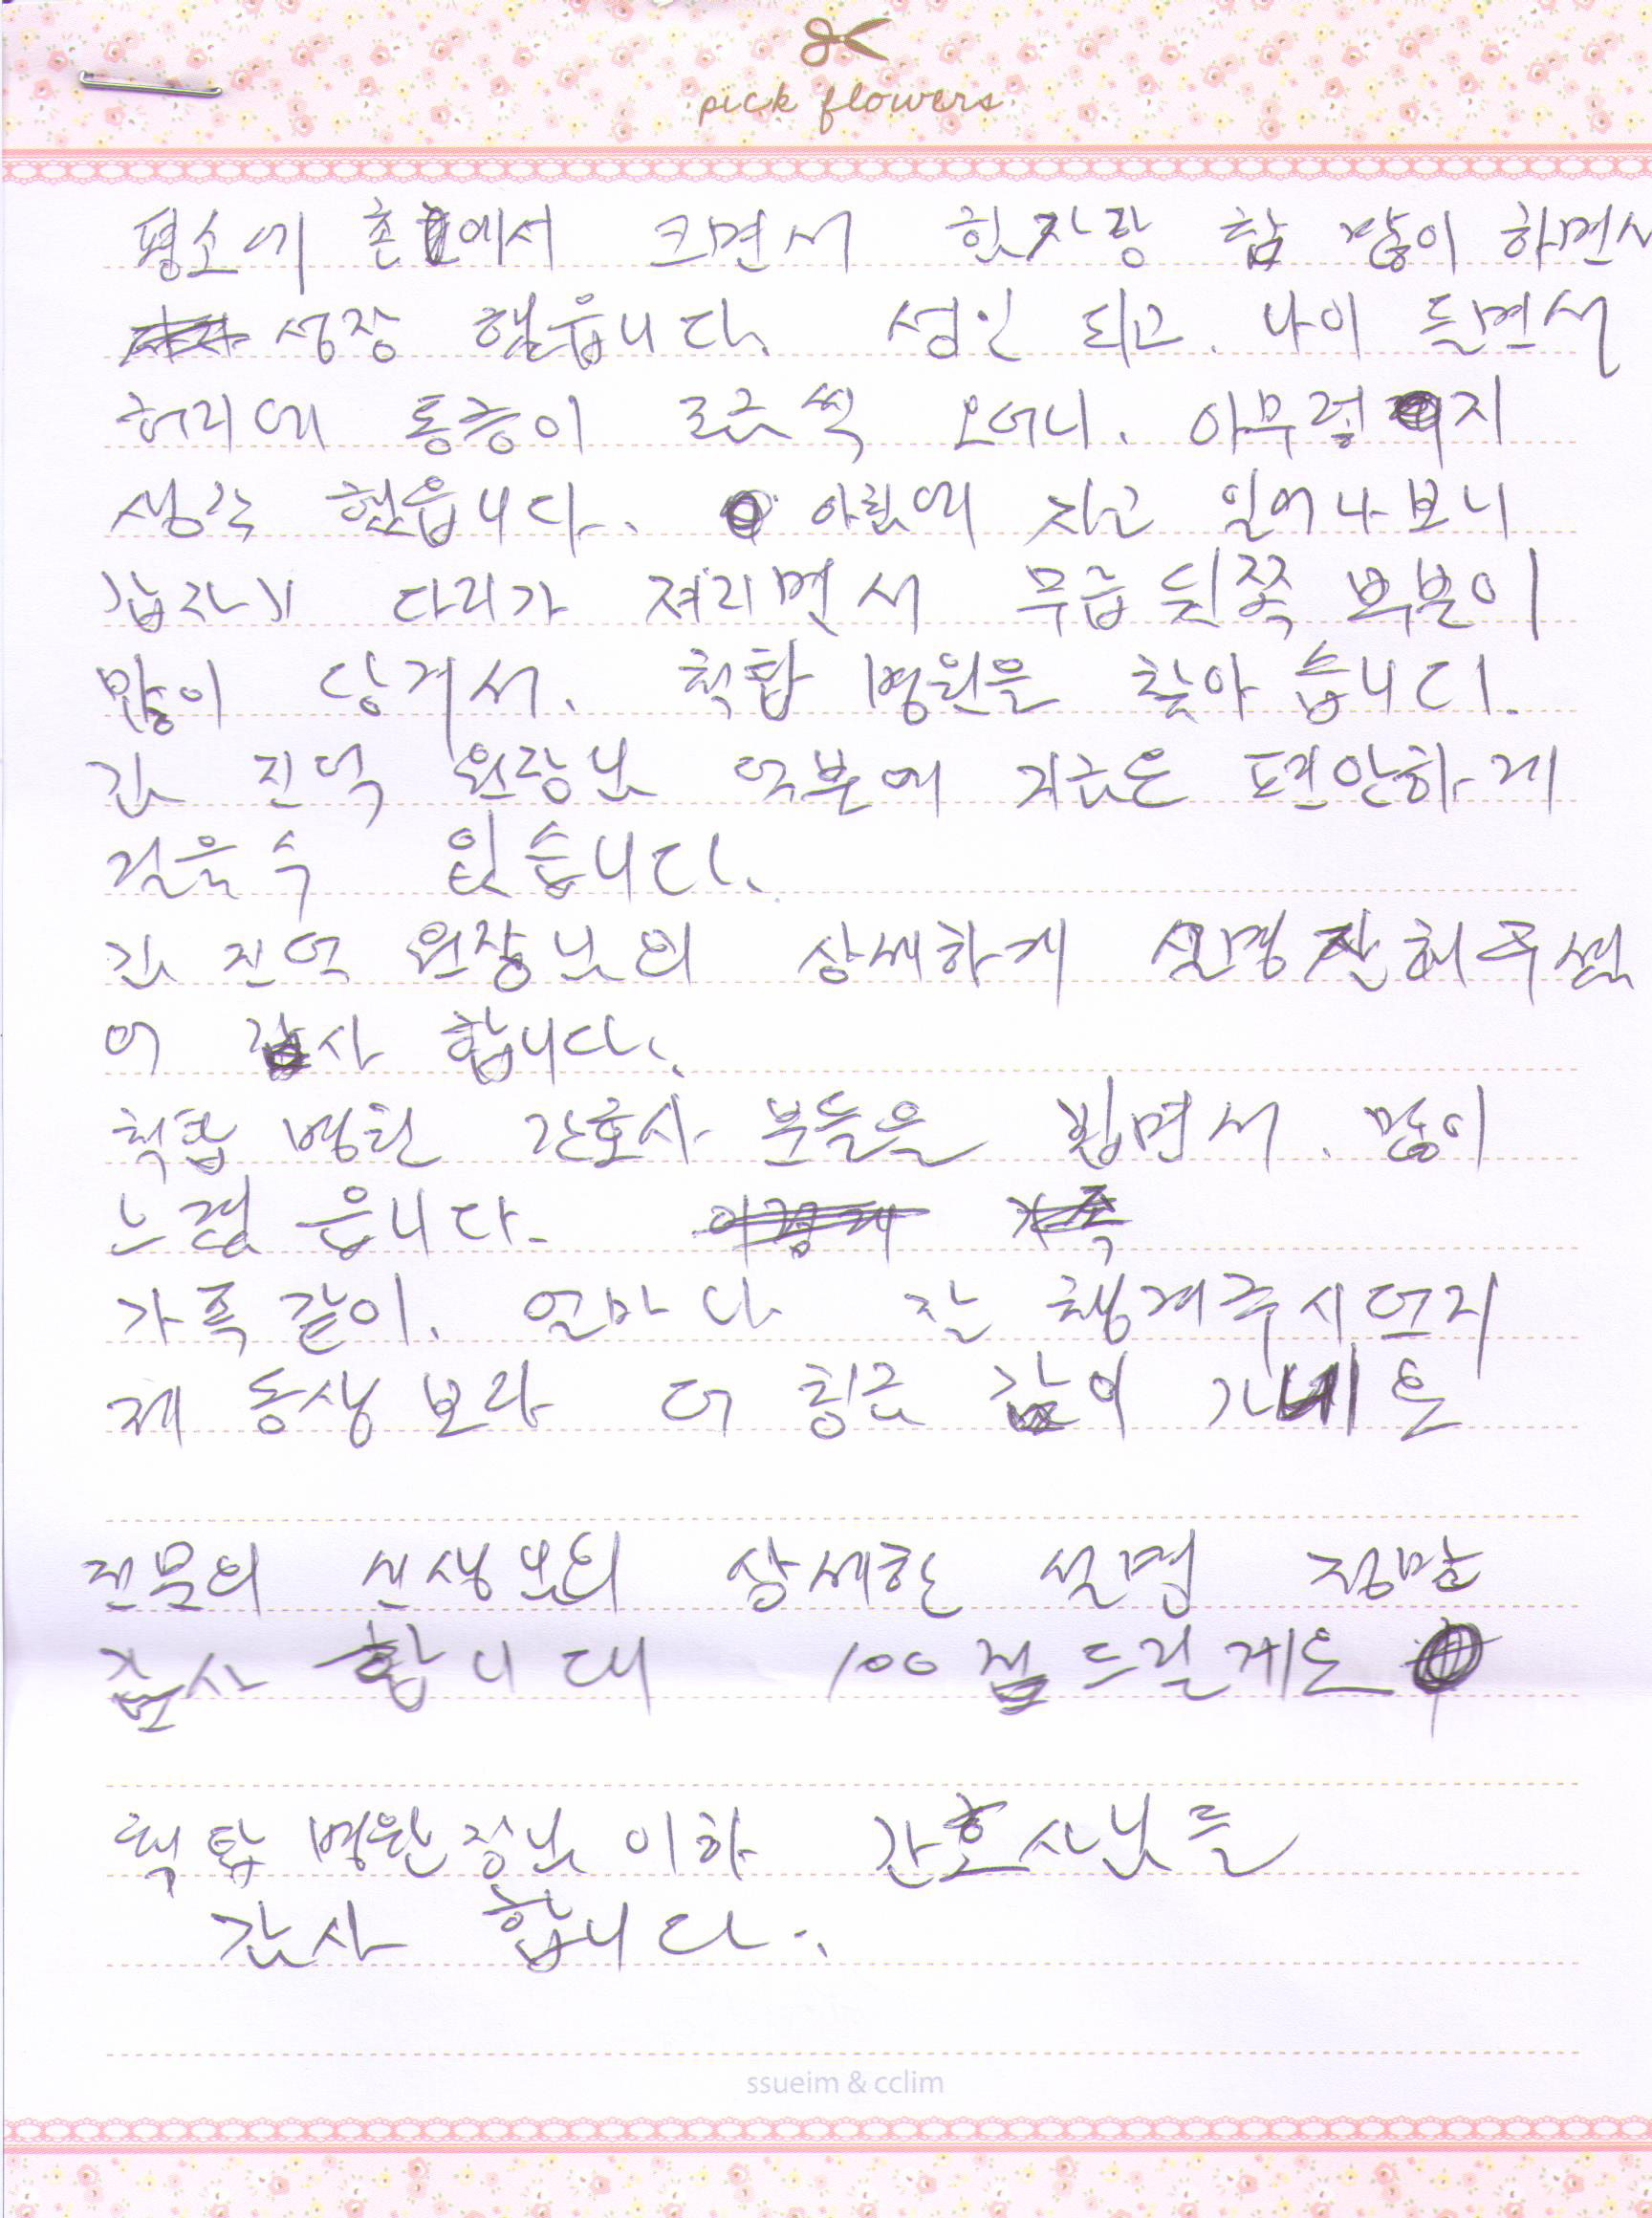 pick flowers
평소에 촌에서 크면서 힛자랑 참 많이 하면서
성장 했읍니다. 성인 되고. 나이 들면서
허리에 통증이 조금씩 오더니. 아무렇지
생각 했읍니다. 아침에 자고 일어나보니
갑자기 다리가 져리면서 무릅 뒷쪽 부분이
많이 당겨서. 척탑 병원을 찾아 습니다.
김 진억 원장님 덕분에 지금은 편안하게
걸을수 있습니다.
김 진억 원장님의 상세하게 설명 잘 해주셨
어 감사 합니다.
척탑 병원 간호사 분들을 뵙면서. 많이
느꼈 읍니다.
가족같이. 얼마나 잘 챙겨주시던지
제 동생보라 더 친근 감이 가네요
전문의 선생님의 상세한 설명 정말
감사 합니다 100점 드릴게요
척탑 병원장님 이하 간호사님들
감사 합니다.
ssueim & cclim